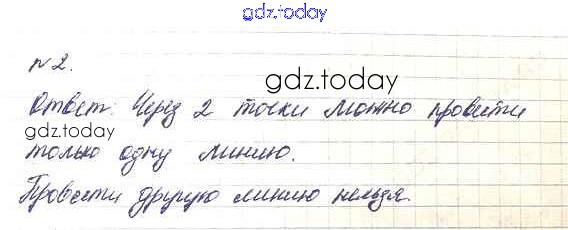 gdz.today
№2.
gdz.today
Ответ: Через 2 точки можно провести
gdz.today
только одну линию.
Провести другую линию нельзя.
gdz.today